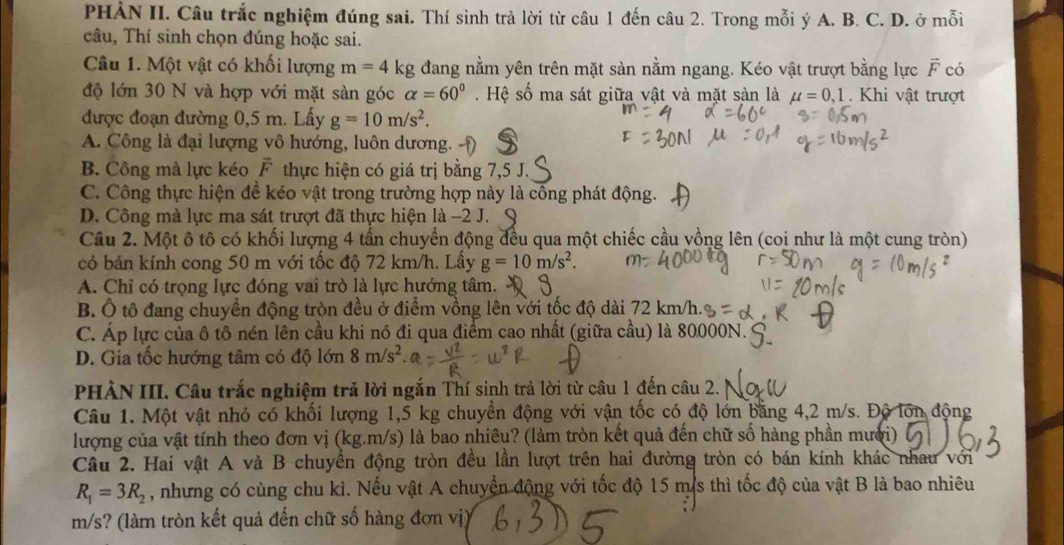 PHẦN II. Câu trắc nghiệm đúng sai. Thí sinh trả lời từ câu 1 đến câu 2. Trong mỗi ý A. B. C. D. ở mỗi
câu, Thí sinh chọn đúng hoặc sai.
Câu 1. Một vật có khối lượng m = 4 kg đang nằm yên trên mặt sàn nằm ngang. Kéo vật trượt bằng lực F⃗ có
độ lớn 30 N và hợp với mặt sàn góc α = 60⁰ . Hệ số ma sát giữa vật và mặt sàn là μ = 0,1. Khi vật trượt
được đoạn đường 0,5 m. Lấy g = 10 m/s². m = 4 α = 60⁰ s = 0,5m
A. Công là đại lượng vô hướng, luôn dương. S F = 30N μ = 0,1 g = 10m/s²
B. Công mà lực kéo F⃗ thực hiện có giá trị bằng 7,5 J. S
C. Công thực hiện để kéo vật trong trường hợp này là công phát động. Đ
D. Công mà lực ma sát trượt đã thực hiện là –2 J. S
Câu 2. Một ô tô có khối lượng 4 tấn chuyển động đều qua một chiếc cầu vồng lên (coi như là một cung tròn)
có bán kính cong 50 m với tốc độ 72 km/h. Lấy g = 10 m/s². m = 4000 kg r = 50m g = 10m/s²
A. Chỉ có trọng lực đóng vai trò là lực hướng tâm. S v = 20m/s
B. Ô tô đang chuyển động tròn đều ở điểm vồng lên với tốc độ dài 72 km/h. s = α . R Đ
C. Áp lực của ô tô nén lên cầu khi nó đi qua điểm cao nhất (giữa cầu) là 80000N. S
D. Gia tốc hướng tâm có độ lớn 8 m/s². a = v²/R = ω²R Đ
PHẦN III. Câu trắc nghiệm trả lời ngắn Thí sinh trả lời từ câu 1 đến câu 2.
Câu 1. Một vật nhỏ có khối lượng 1,5 kg chuyển động với vận tốc có độ lớn bằng 4,2 m/s. Độ lớn động
lượng của vật tính theo đơn vị (kg.m/s) là bao nhiêu? (làm tròn kết quả đến chữ số hàng phần mười) 5 6,3
Câu 2. Hai vật A và B chuyển động tròn đều lần lượt trên hai đường tròn có bán kính khác nhau với
R₁ = 3R₂, nhưng có cùng chu kì. Nếu vật A chuyển động với tốc độ 15 m/s thì tốc độ của vật B là bao nhiêu
m/s? (làm tròn kết quả đến chữ số hàng đơn vị) 6,3 5